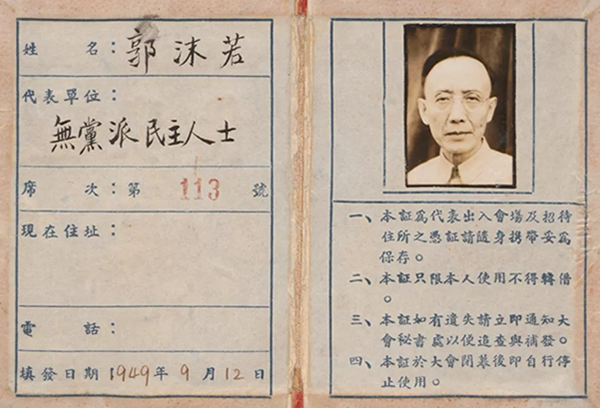 姓名：郭沫若
代表單位：
無黨派民主人士
席次：第 113 號
現在住址：
電話：
填發日期：1949年9月12日
一、本証爲代表出入會場及招待
住所之憑証請隨身携帶妥爲
保存。
二、本証只限本人使用不得轉借
。
三、本証如有遺失請立即通知大
會秘書處以便追查與補發。
四、本証於大會閉幕後即自行停
止使用。